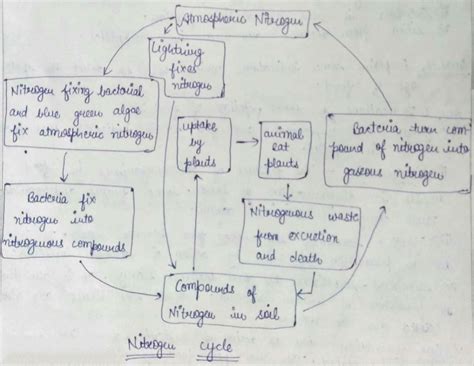 Atmospheric Nitrogen
Lightning
fixes
nitrogen
Nitrogen fixing bacterial
and blue green algae
fix atmospheric nitrogen
uptake
by
plants
animal
eat
plants
Bacteria turn com
pound of nitrogen into
gaseous nitrogen
Bacteria fix
nitrogen into
nitrogenous compounds
Nitrogenous waste
from excretion
and death
Compounds of
Nitrogen in soil
Nitrogen cycle